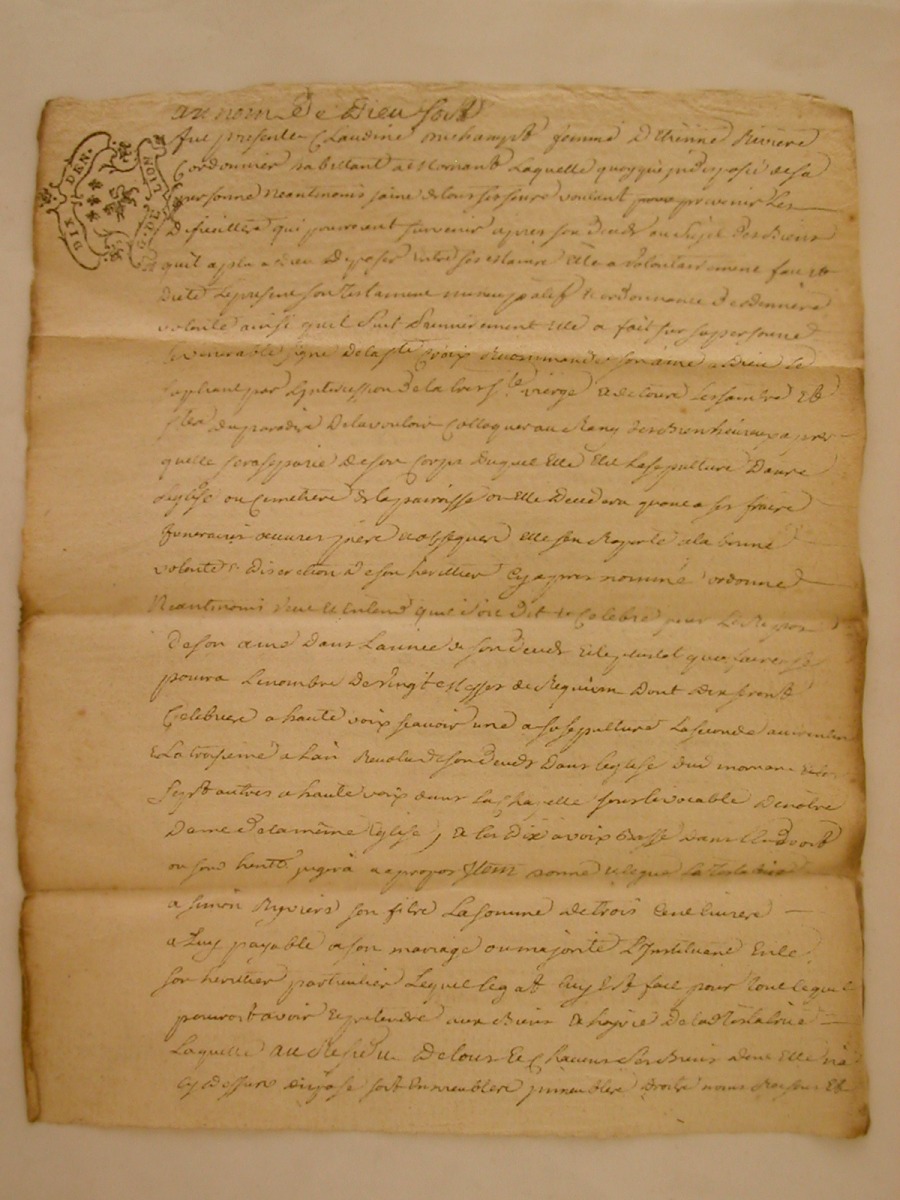 au nom De Dieu soit
DIX DEN. G. DE LION
fut presente Claudine michampt femme D'Etienne Riviere
Cordonnier habittant a Mornant Laquelle quoy que jndisposée de sa
personne Neantmoins saine de tous ses sens voulant prevenir Les
Dificultes qui pourroient survenir apres son Decds au sujet Des Biens
quil a plu a Dieu Disposer Elle a volontairement fait et
Dicté Le present son Testament nuncupatif et ordonnance De derniere
volonté ainsi quil suit Premierement elle a fait sur sa personne
Le venerable signe De la ste Croix Recommandé son ame a Dieu Le
supliant par Lyntercession De la tres ste vierge et de tous Les saints et
stes du paradis De la vouloir Colloquer au Rang des Bien heureux apres
quelle sera separée de son Corps Duquel Elle Elit La sepulture Dans
Leglise ou Cemetiere de la paroisse ou Elle Decedera quant a ses fraire
funeraires œuvres pies et obseques elle sen Raporte a la bonne
volonté & Discretion De son heritier Cy apres nommé ordonne
Neantmoins veut et Entend quil soit Dit et Celebré pour Le Repos
de son ame Dans L'année de son Decds et le plustot que faire se
poura Le nombre De vingt Messes de Requiem Dont Dix seront
Celebrées a haute voix scavoir une a sa sepulture La seconde
& La troisieme a L'an Revolu de son Decds Dans leglise Dud mornant
sept autres a haute voix dans La Chapelle sous le vocable De notre
Dame De la même Eglise, & les Dix a voix Basse Dans L'Endroit
ou son herité jugera a propos Item donne et legue La Testatrice
a simon Riviere son fils La somme de trois Cent livres
a Luy payable a son mariage ou majorité L'Instituant En ce
son heritier particulier Lequel legat luy Est fait pour tout ce quil
pouroit avoir et pretendre aux Biens & hoirie De la Testatrice
Laquelle au Residu De tous Et Chacuns ses Biens dont Elle n'a
Cy Dessus Disposé soit En meubles jmmeubles Droits noms Raisons Et